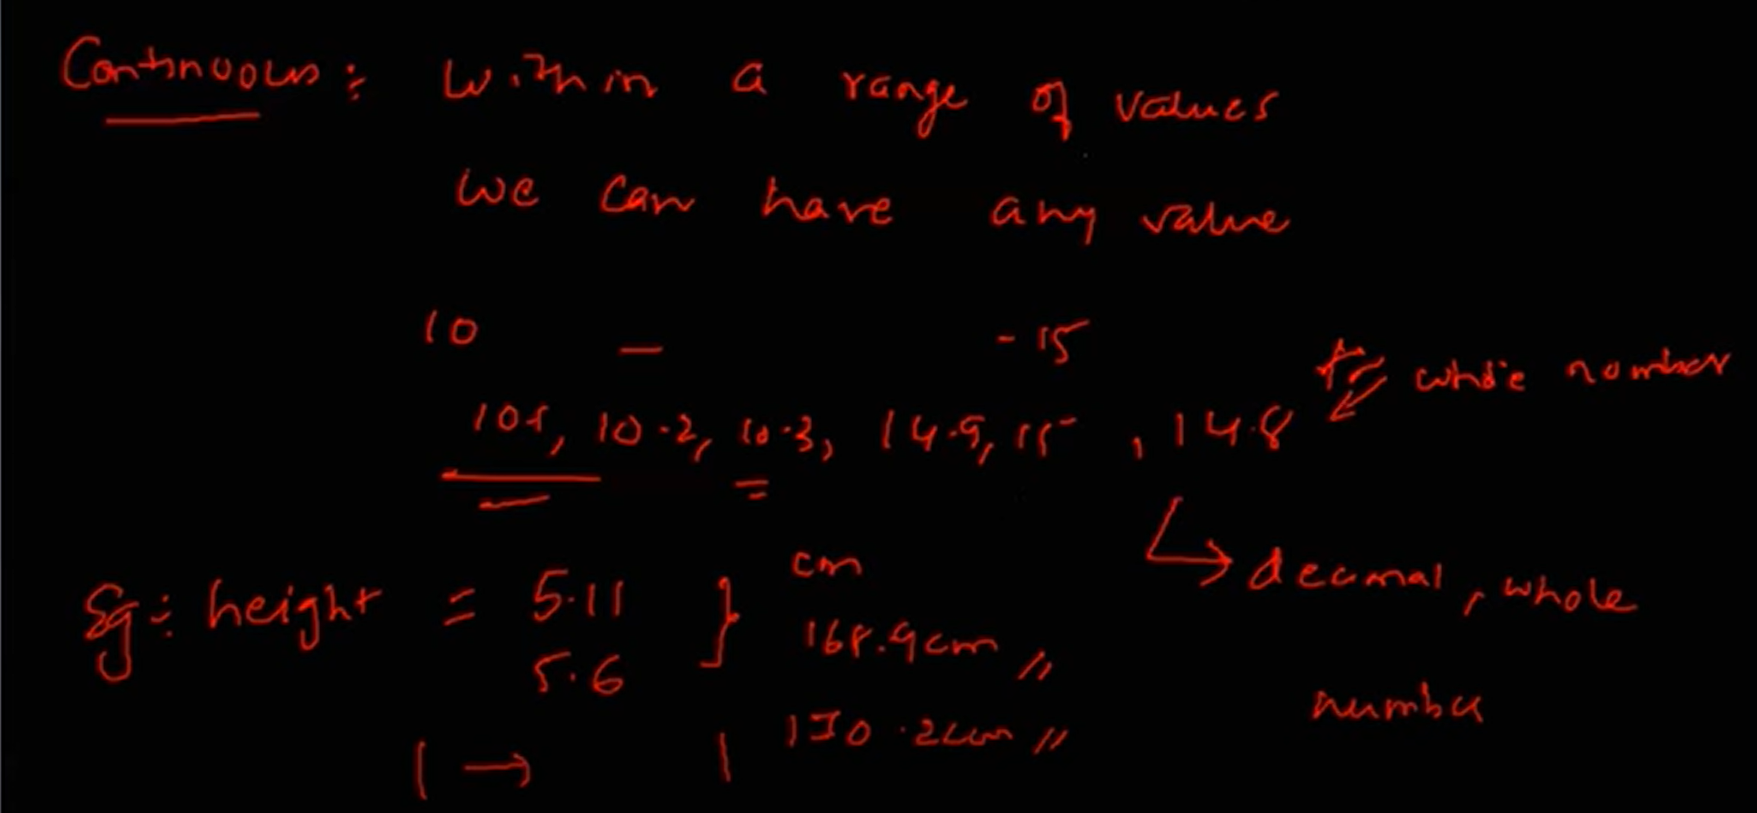 Continuous : Within a range of values
we can have any value
10 — - 15
10.1, 10.2, 10.3, 14.9, 15 , 14.8 whole number
↳ decimal, whole
number
Eg : height = 5.11 } cm
5.6 168.9cm //
| → | 170.2cm //